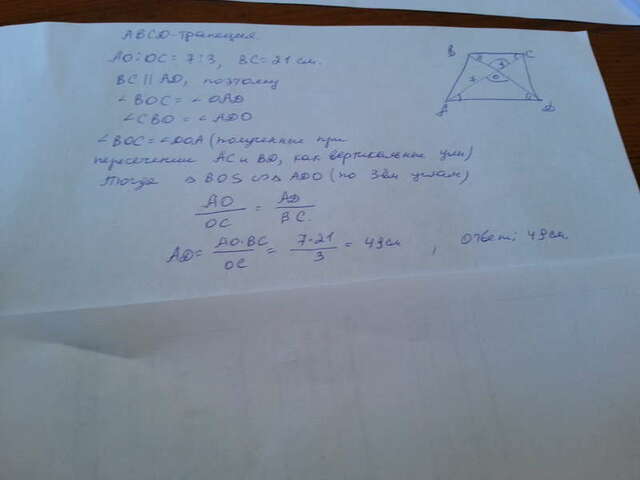 ABCD-трапеция.
AO:OC = 7:3, BC=21 см.
BC || AD, поэтому
∠BOC = ∠OAD
∠CBO = ∠ADO
∠BOC = ∠DOA (полученные при
пересечении AC и BD, как вертикальные углы)
Тогда △ BOS ∾△ ADO (по 3ём углам)
AO/OC = AD/BC.
AD = AO·BC/OC = 7·21/3 = 49см, Ответ: 49см.
B C
3
7 O
A D